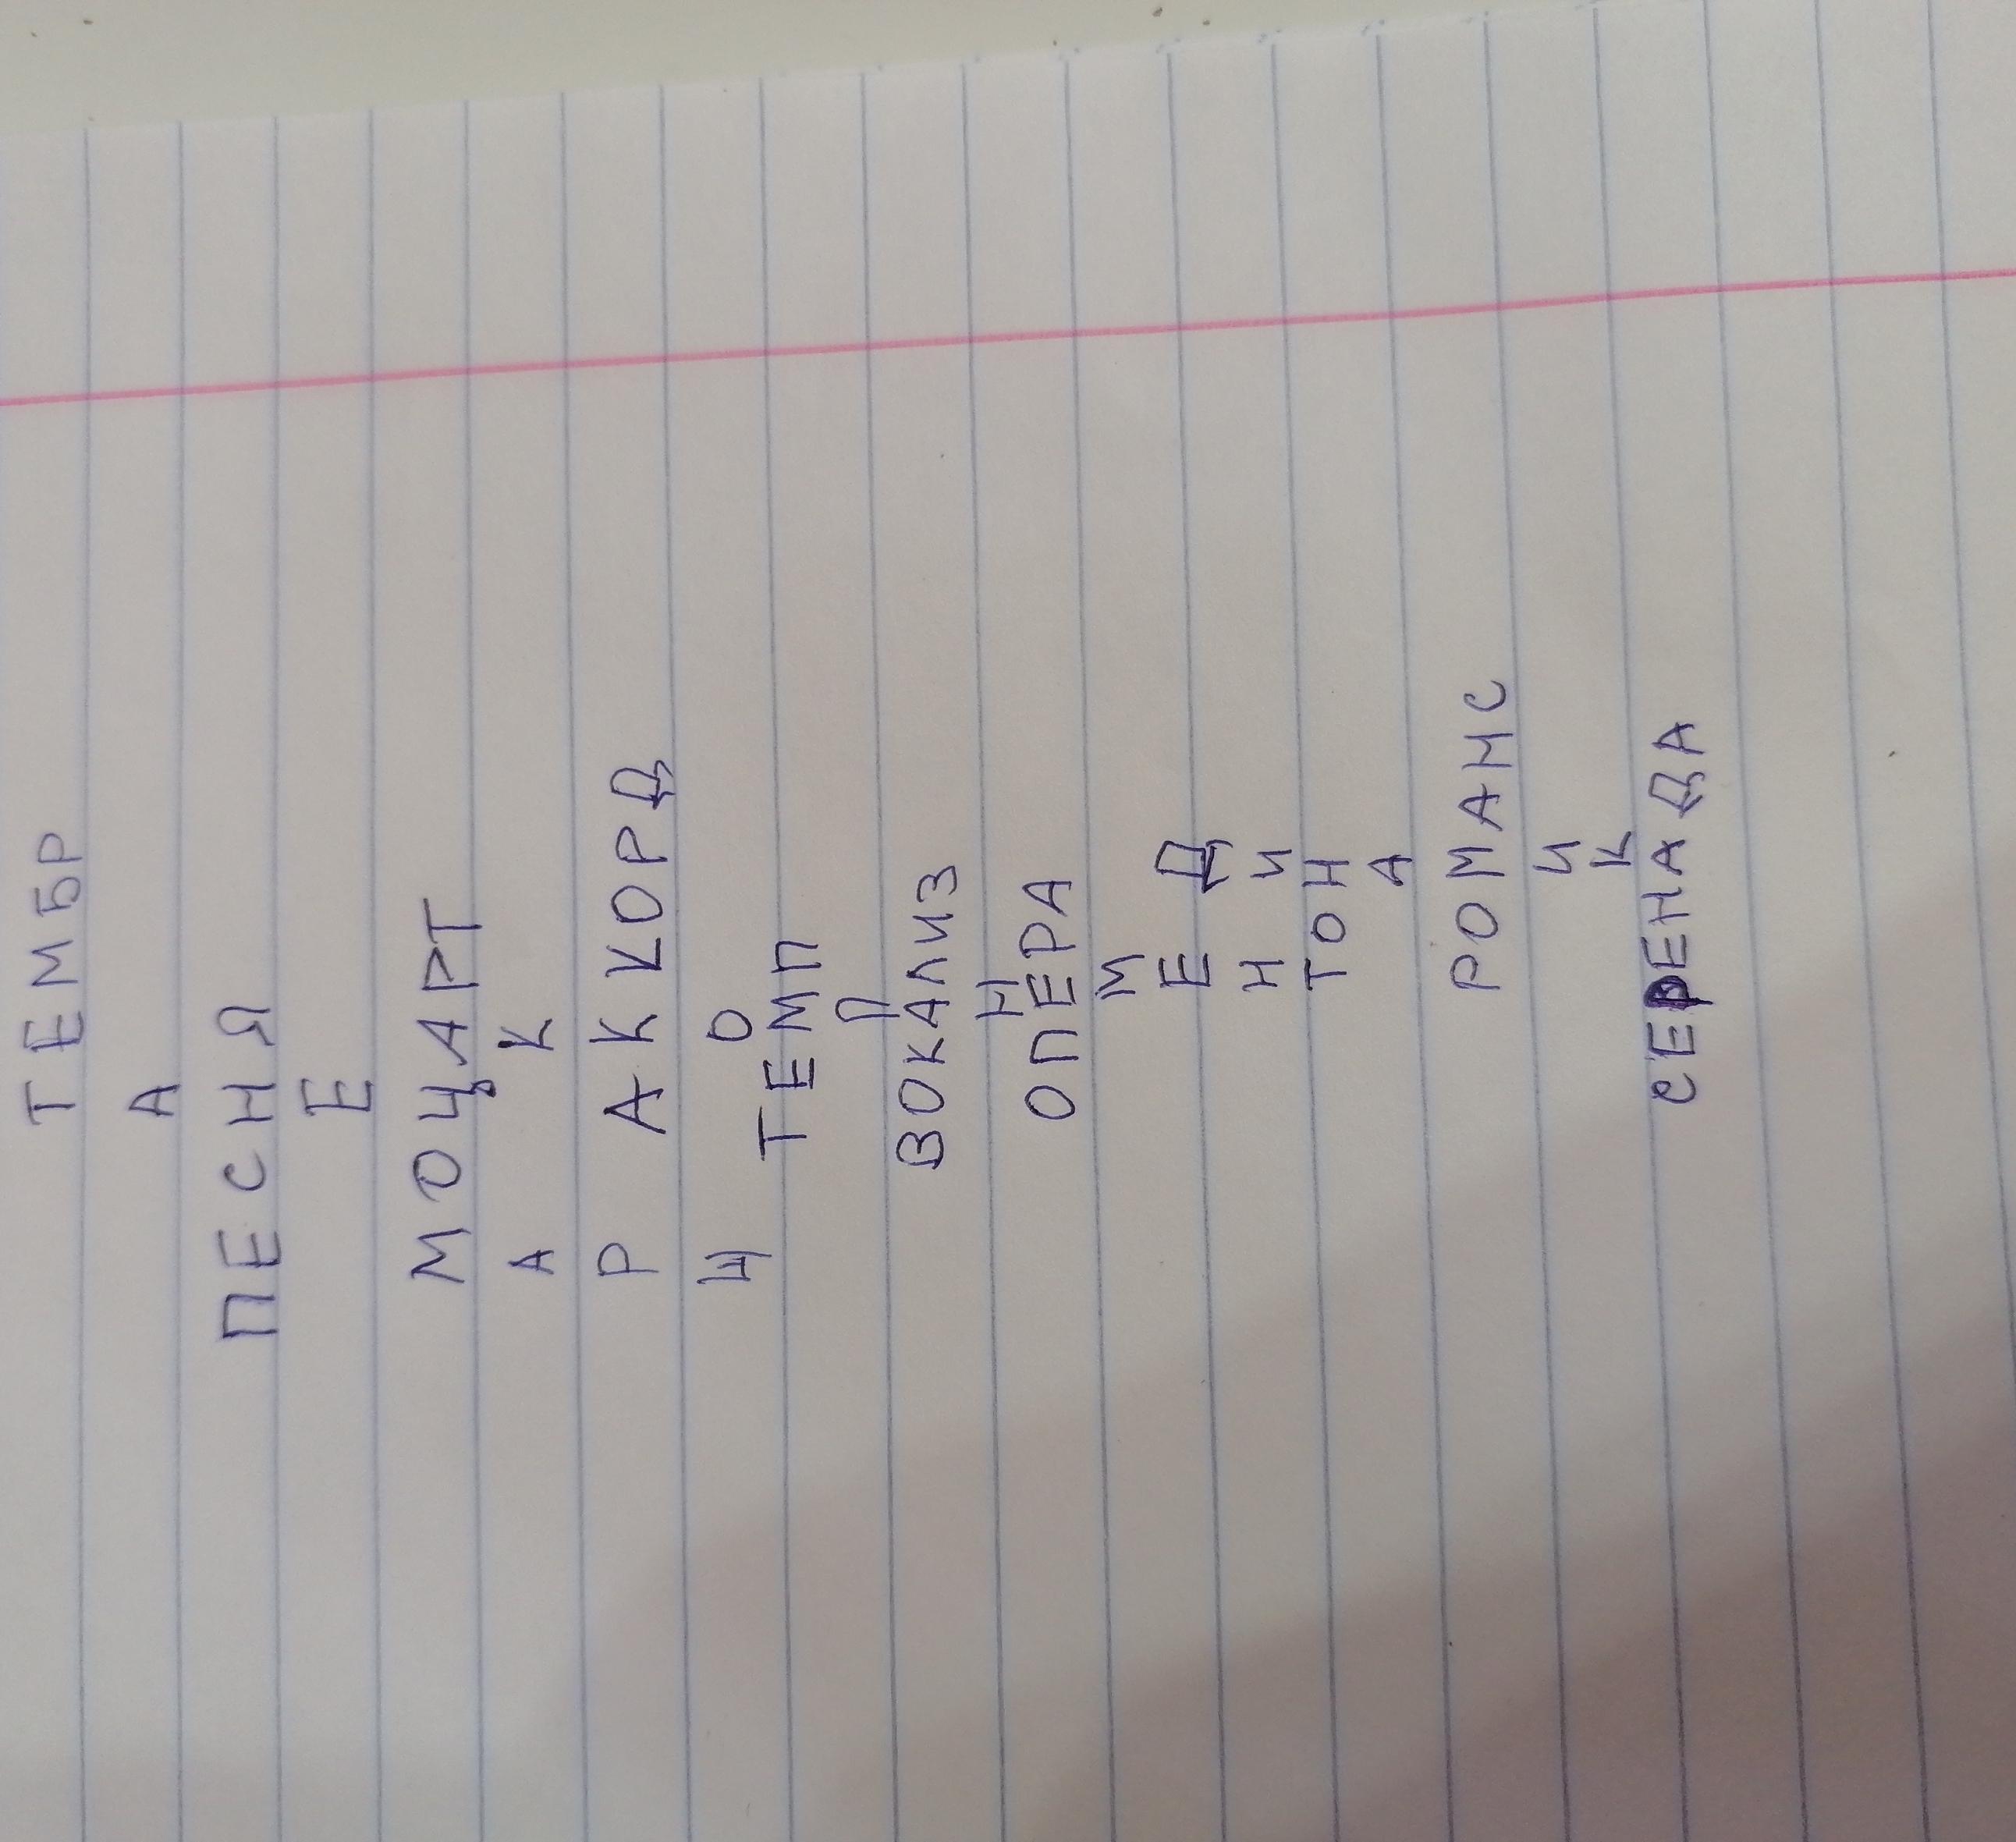 ТЕМБР
А
ПЕСНЯ
Е
МОЦАРТ
А К
Р АККОРД
Ш О
ТЕМП
П
ВОКАЛИЗ
Н
ОПЕРА
М
Е Д
Н И
ТОН
А
РОМАНС
И
К
СЕРЕНАДА